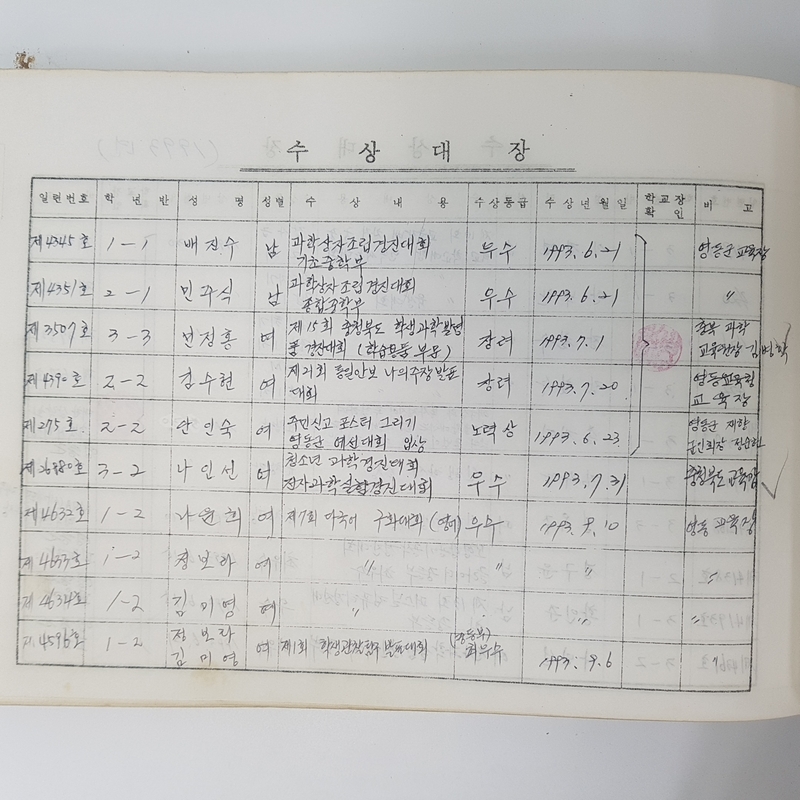 수 상 대 장
일련번호 학 년 반 성 명 성별 수 상 내 용 수상등급 수 상 년 월 일 학교장 확 인 비 고
제4345호 1-1 배진수 남 과학상자조립경진대회 우수 1993. 6. 21 영동군 교육장
기초중학부
제4351호 2-1 민규식 남 과학상자조립경진대회 우수 1993. 6. 21 〃
종합중학부
제3507호 3-3 선정홍 여 제15회 충청북도 학생과학발명 장려 1993. 7. 1 충북 과학
품 경진대회 (학습용품 부문) 교육원장
제4390호 2-2 김수현 여 제21회 통일안보 나의주장발표 장려 1993. 7. 20 영동교육청
대회 교육장
제275호 2-2 안인숙 여 주민신고 포스터 그리기 노력상 1993. 6. 23 영동군 재향
영동군 예선대회 입상 군인회장
3-2 나인선 여 청소년 과학경진대회 우수 1993. 7. 31 충청북도 교육감
전자과학실험경진대회
제4632호 1-2 나윤희 여 제7회 외국어 구화대회 (영어) 우수 1993. 9. 10 영동 교육장
제4633호 1-2 정보라 여 〃 〃 〃 〃
제4634호 1-2 김미영 여 〃 〃 〃
제4596호 1-2 정보라 여 제1회 학생관찰탐구발표대회 최우수 1993. 9. 6 〃
김미영